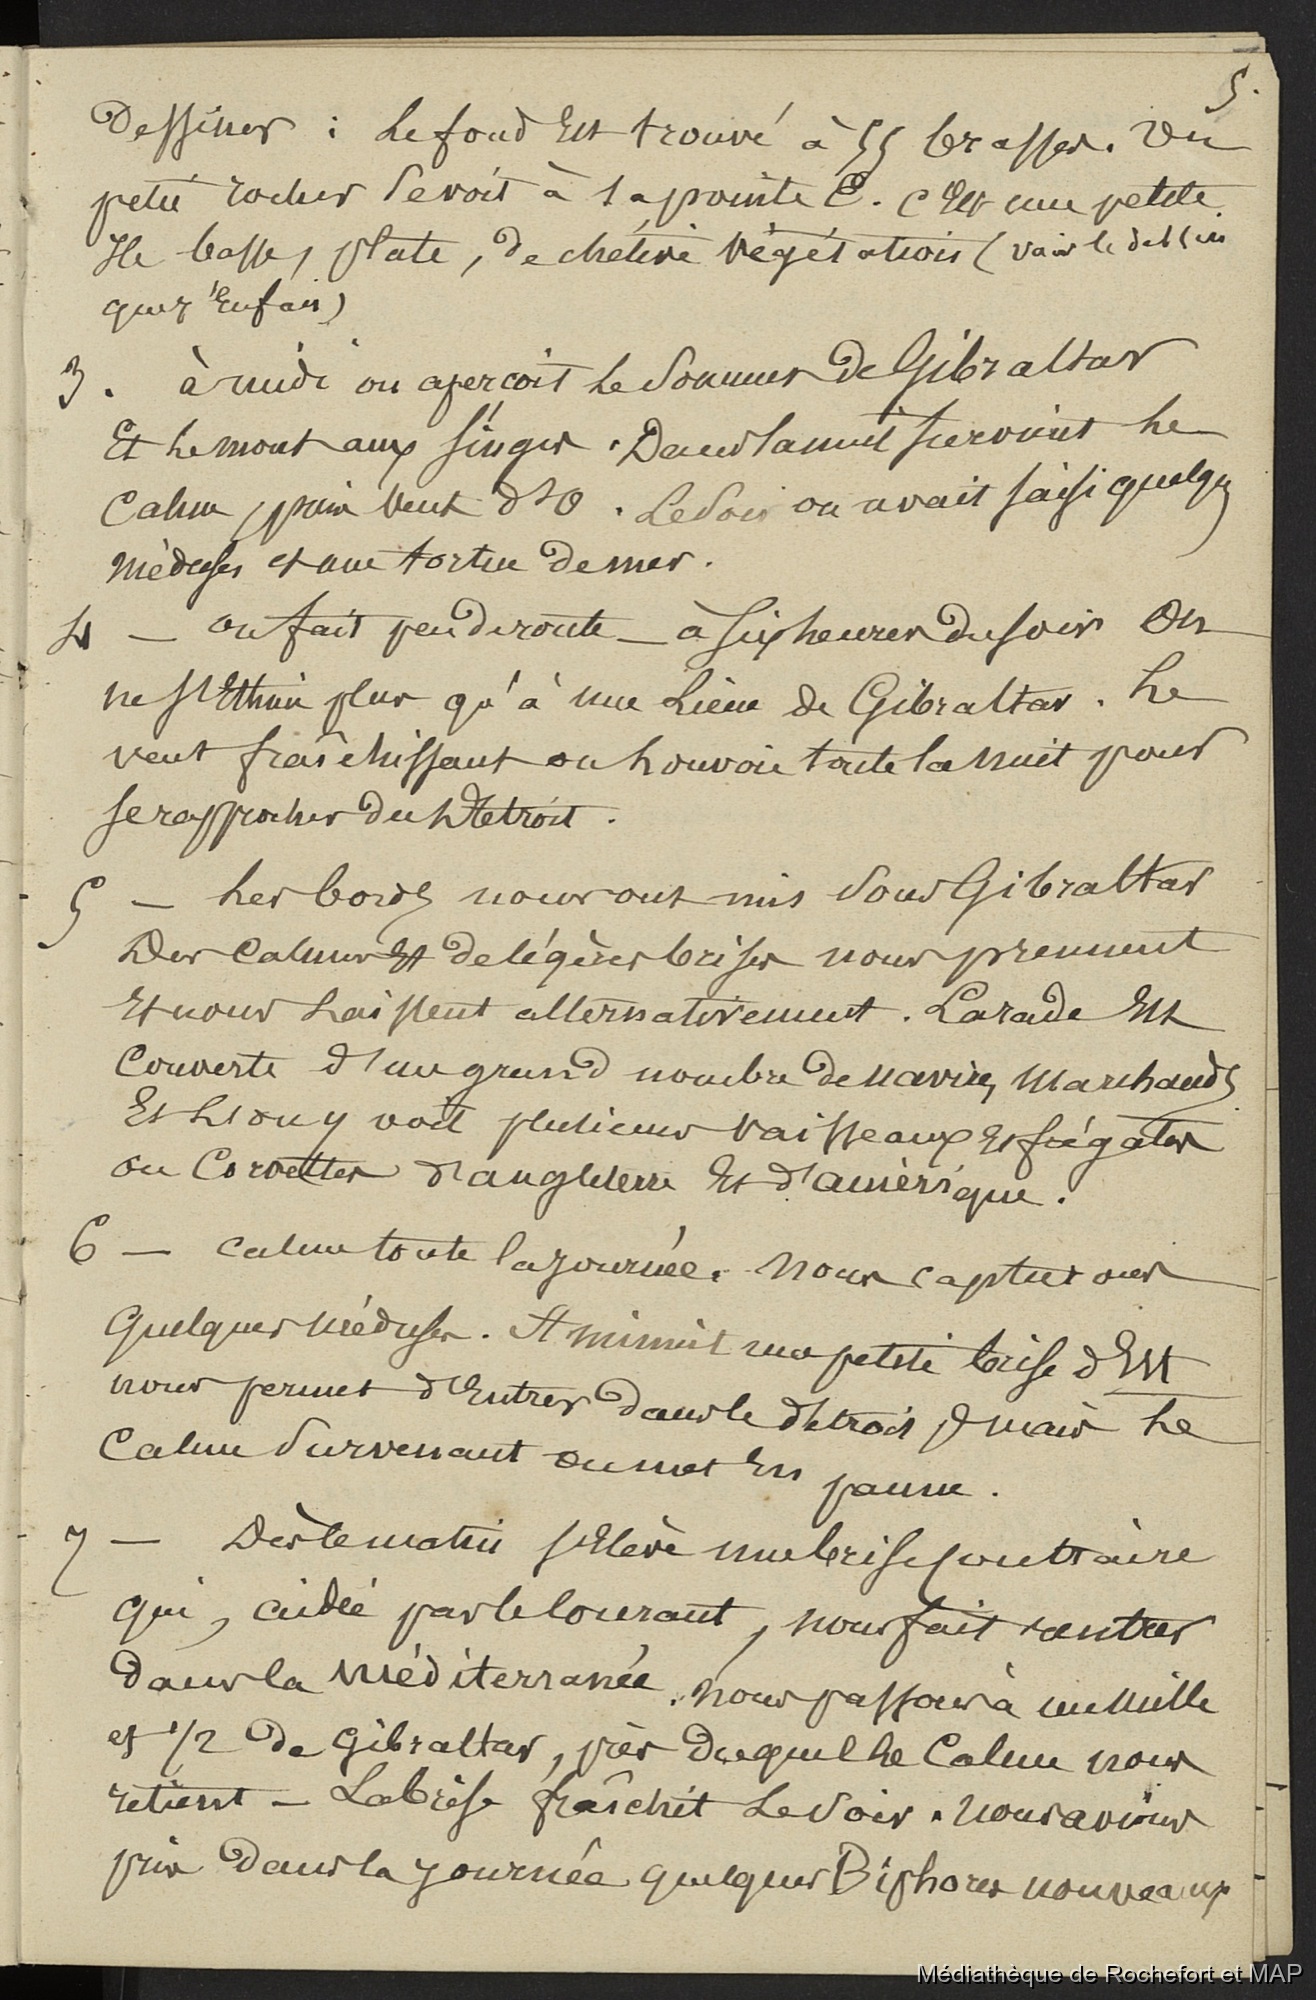 5.
Dessiner : Le fond Est trouvé à 55 brasses. Un
petit rocher se voit à la pointe E. c'Est une petite
Ile basse, plate, de chétive végétation (voir le dessin
que j'En fais)
3. à midi on aperçoit le sommet de Gibraltar
Et le mont aux singes. Dans la nuit survient le
Calme, puis vent d'O. Le soir on avait saisi quelqs
méduses et une tortue de mer.
4 — on fait peu de route — à six heures du soir On
ne s'Estime plus qu'à une Lieue de Gibraltar. Le
vent fraîchissant on Louvoie toute la nuit pour
se rapprocher du Détroit.
5 — Les bords nous ont mis sous Gibraltar
Des calmes Et de légères brises nous prennent
Et nous Laissent alternativement. La rade Est
Couverte d'un grand nombre de navires marchands
Et L'on y voit plusieurs vaisseaux Et frégates
ou Corvettes d'angleterre Et d'amèrique.
6 — calme toute la journée. Nous capturons
quelques méduses. A minuit une petite brise d'Est
nous permet d'Entrer dans le détroit, mais Le
Calme survenant on met En panne.
7 — Dès le matin s'Elève une brise contraire
qui, aidée par le courant, nous fait rentrer
dans la Méditerranée. Nous passons à un Mille
et 1/2 de Gibraltar, près duquel le Calme nous
retient — La brise fraîchit Le soir. Nous avions
pris dans la journée quelques Biphores nouveaux
Médiathèque de Rochefort et MAP